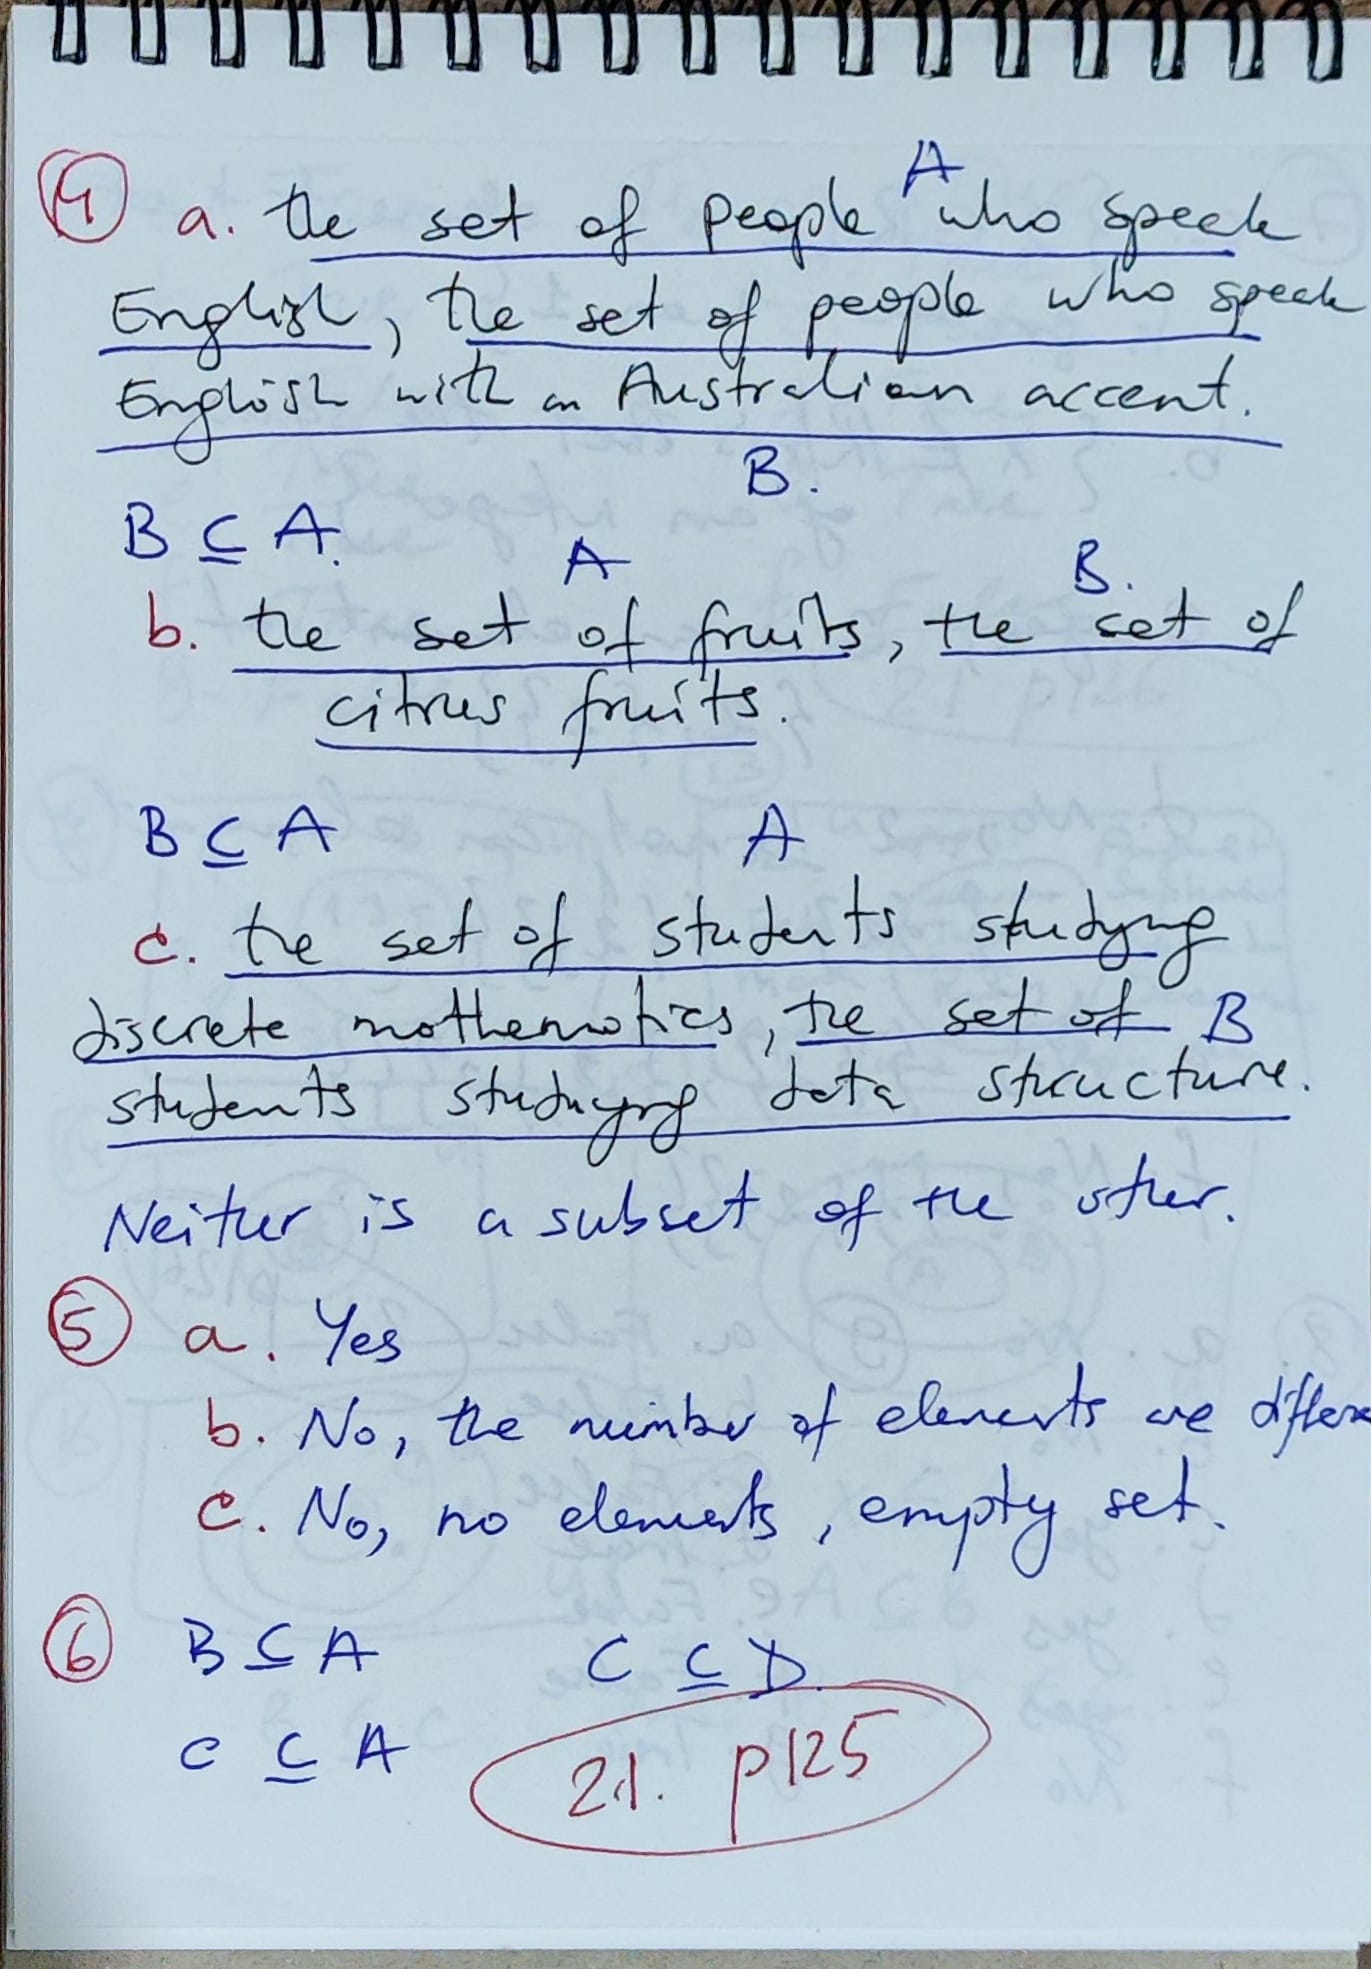 A
④ a. the set of people who speak
English, the set of people who speak
English with an Australian accent.
B.
B ⊆ A.
A B.
b. the set of fruits, the set of
citrus fruits.
B ⊆ A A
c. the set of students studying
discrete mathematics, the set of B
students studying data structure.
Neither is a subset of the other.
⑤ a. Yes
b. No, the number of elements are differe
c. No, no elements, empty set.
⑥ B ⊆ A C ⊆ D.
C ⊆ A
2.1. p125